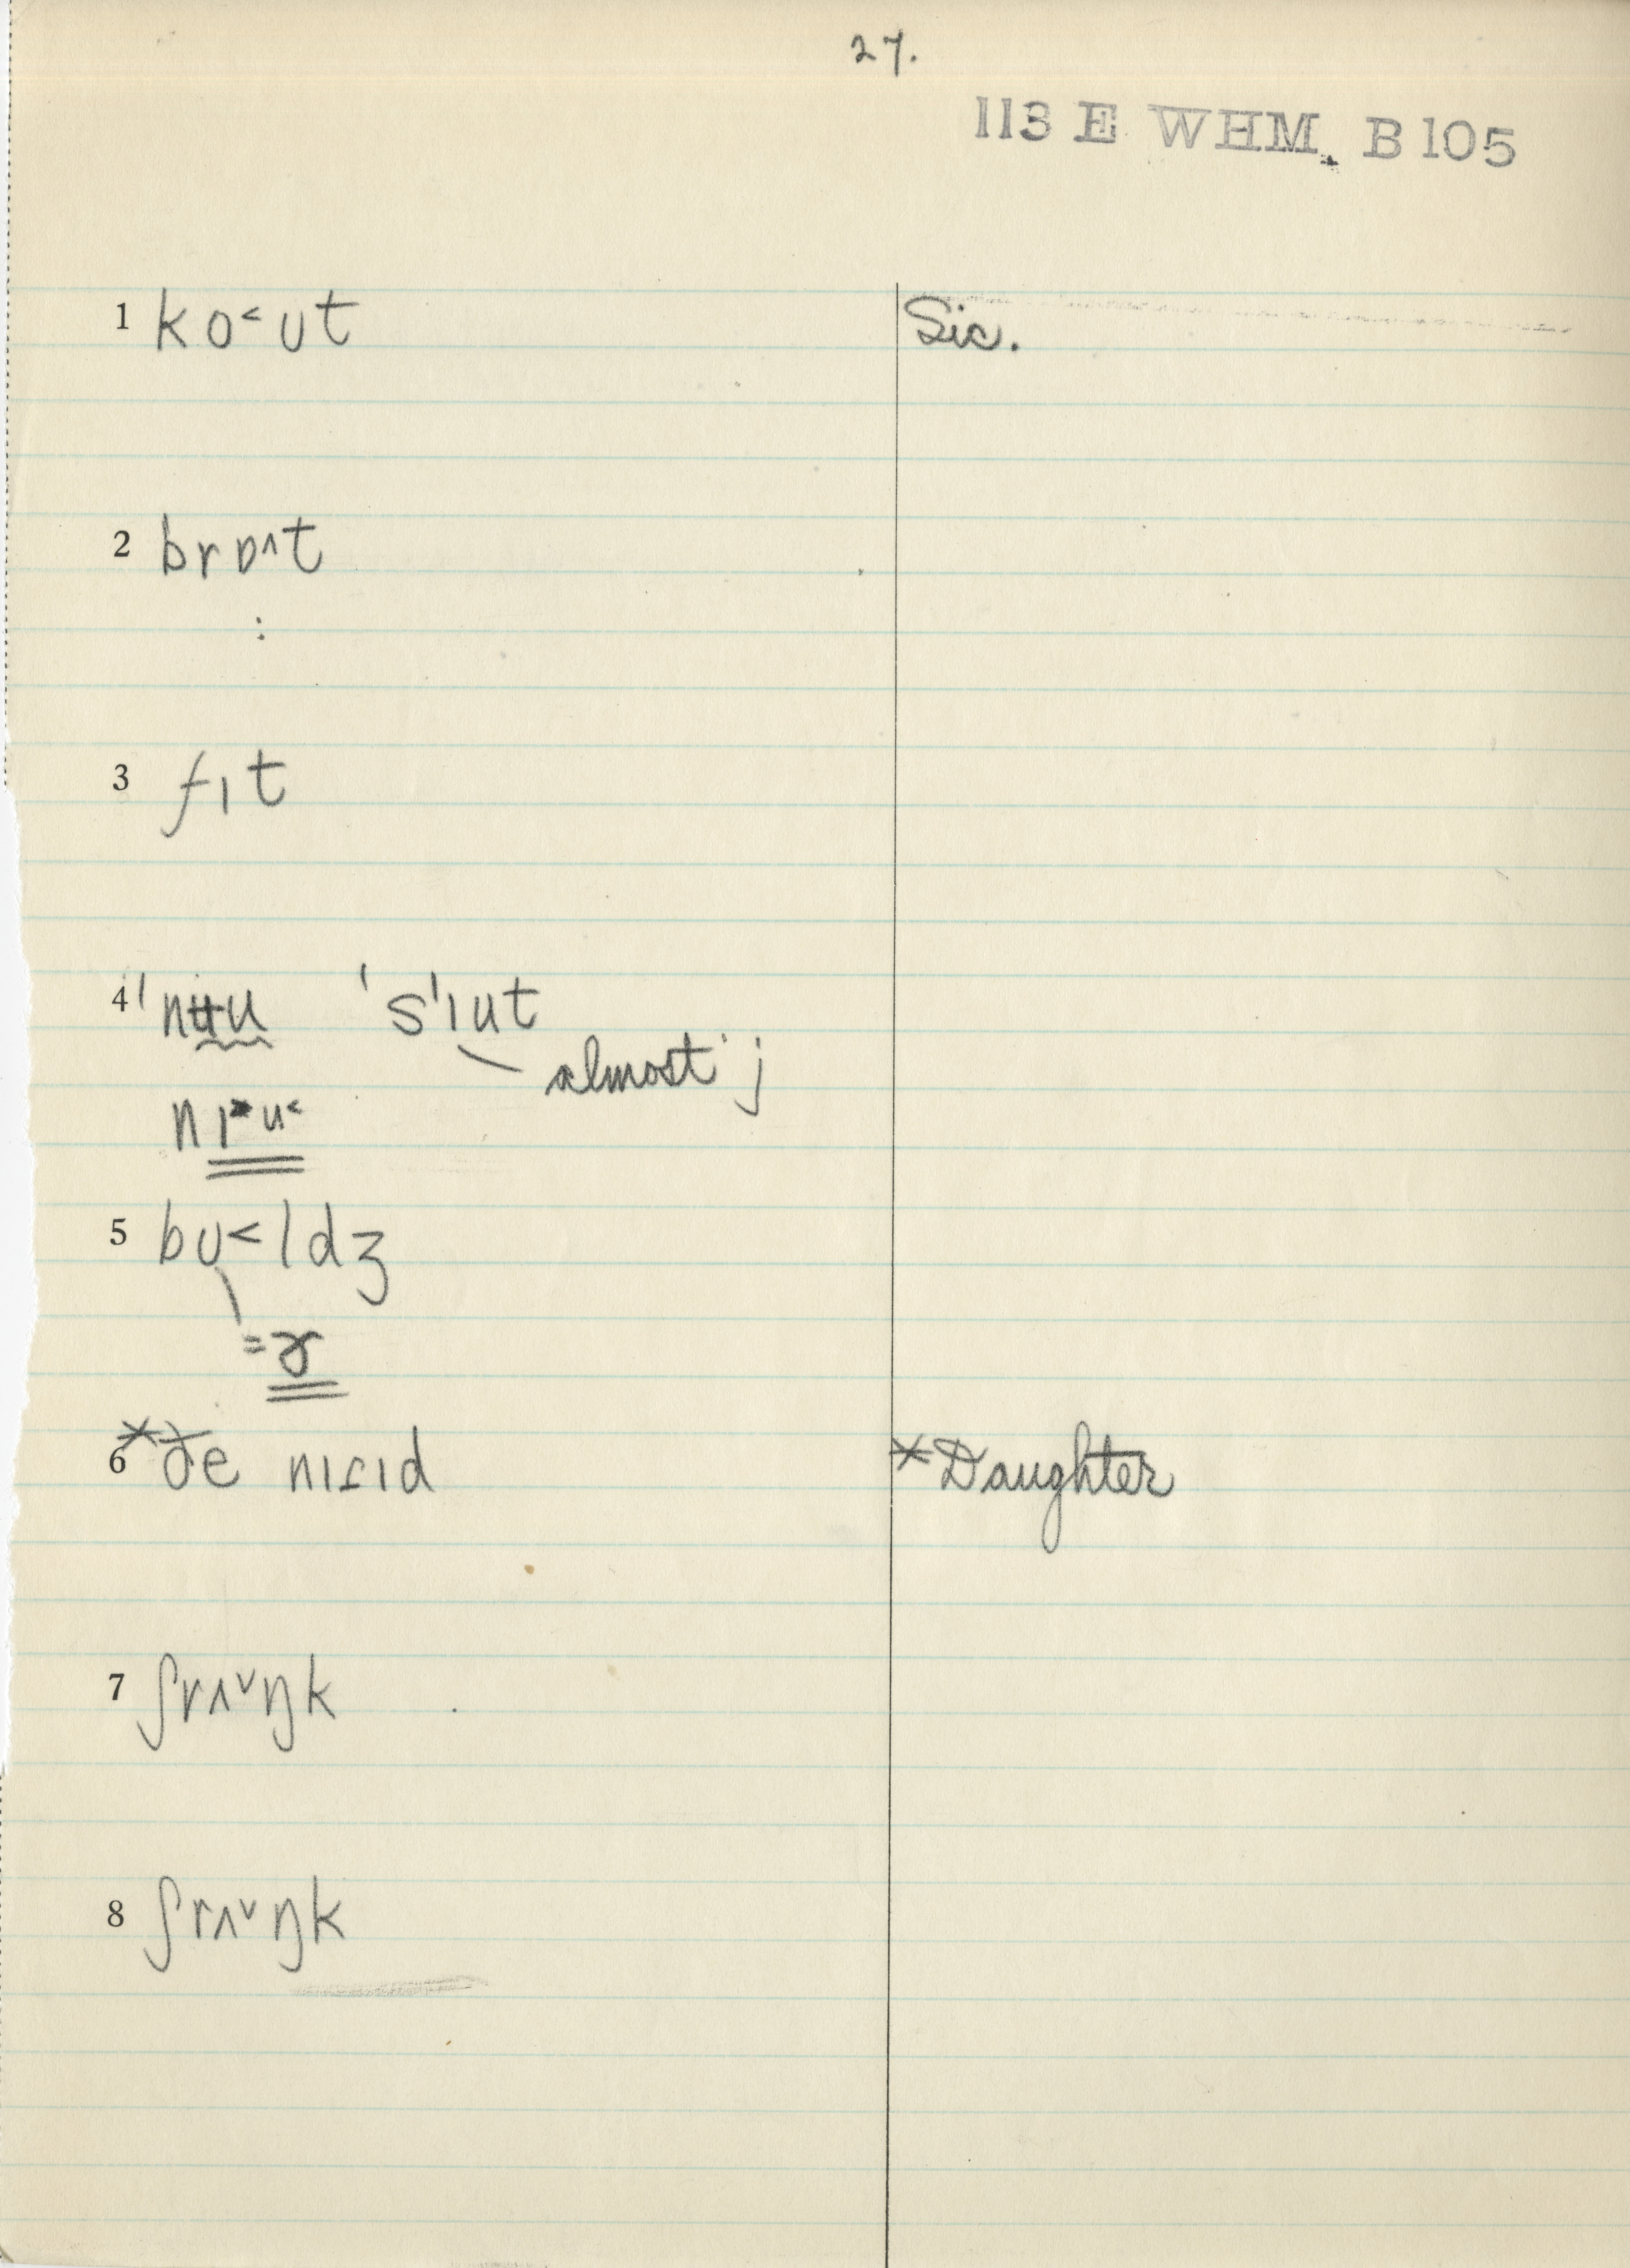 27.
113 E WHM. B105
1 ko˂ʊt Sic.
2 brɒ˄t
:
3 fɪt
4 'nʉu 's'ɪut
almost j
nɪ˃u˂
5 bʊ˂ldʒ
=ɤ
6 *ðe nɪɾɪd *Daughter
7 ʃrʌ˅ŋk
8 ʃrʌ˅ŋk